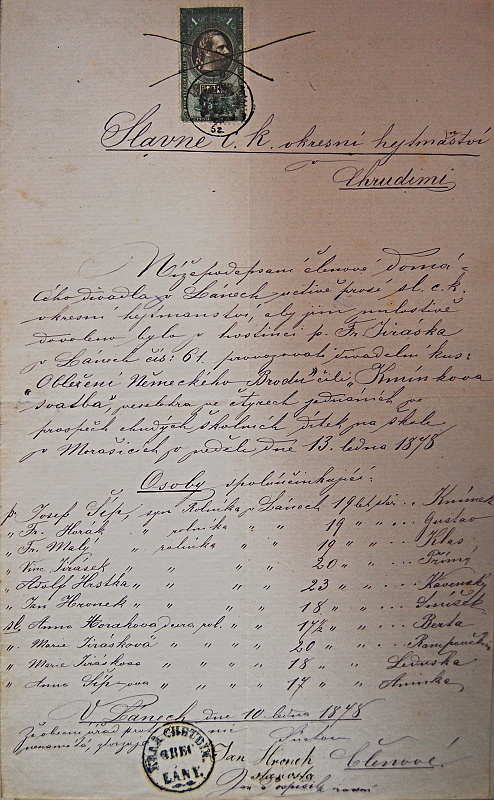 1
52.
Slavné c. k. okresní hejtmanství
v
Chrudimi
Níže podepsaní členové domá-
cího divadla v Lánech uctivě prosí sl. c. k.
okresní hejtmanství, aby jim milostivě
dovoleno bylo v hostinci p. Fr. Jiraska
v Lánech čís: 61. provozovati divadelní kus:
"Obležení Německého Brodu" čili "Kmínkova
svatba", veselohra ve čtyrech jednáních ve
prospěch chudých školních dítek na škole
v Morašicích v neděli dne 13. ledna 1878
Osoby spoluúčinkující:
p. Josef Šíp, syn Rolníka z Lánech 19 let stár... Kmínek
„ Fr. Horak „ rolníka „ „ 19 „ „ ... Gustav
„ Fr. Malý „ rolníka „ „ 19 „ „ ... Klas
„ Vinc. Jirasek „ „ „ „ 20 „ „ ... Přímý
„ Adolf Hrstka „ „ „ „ 23 „ „ ... Kavenský
„ Jan Hronek „ „ „ „ 18 „ „ ...
sl. Anna Horakova dcera rol. „ „ 17½ „ „ ... Berta
„ Marie Jirásková „ „ „ „ 20 „ „ ...
„ Marie Jiraskova „ „ „ „ 18 „ „ ... Liduška
„ Anna Šípova „ „ „ „ 17 „ „ ... Aninka
V Lánech dne 10. ledna 1878
Členové.
OBEC
LÁNY.
Jan Hronek
starosta